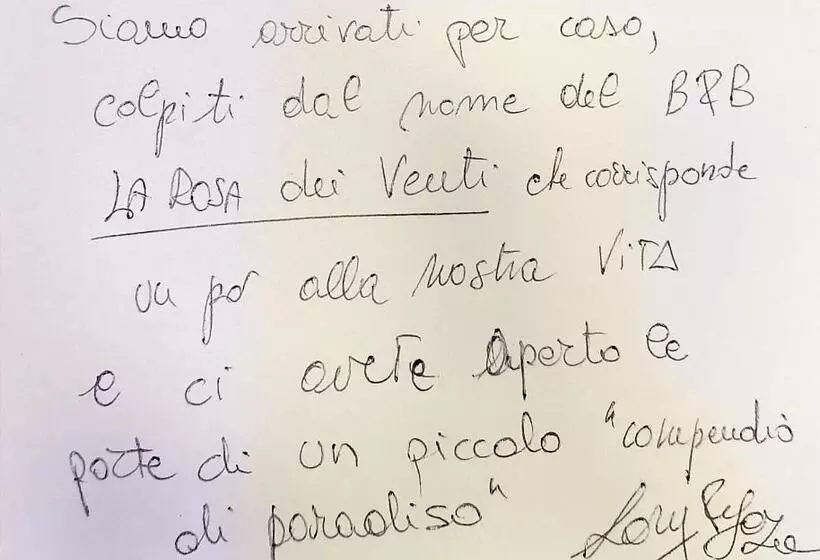 Siamo arrivati per caso,
colpiti dal nome del B&B
LA ROSA dei Venti che corrisponde
un po' alla nostra VITA
e ci avete aperto le
porte di un piccolo "compendio
di paradiso" Lory